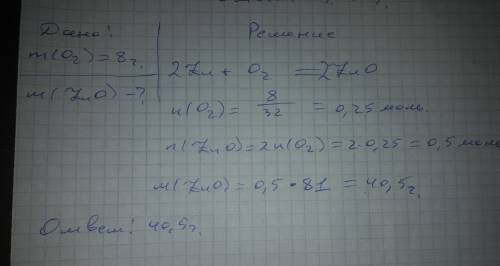 Дано:
m(O₂) = 8г.
m(ZnO) -?
Решение
2Zn + O₂ = 2ZnO
n(O₂) = 8/32 = 0,25 моль.
n(ZnO) = 2n(O₂) = 2·0,25 = 0,5 моль
м(ZnO) = 0,5 · 81 = 40,5г.
Ответ: 40,5г.